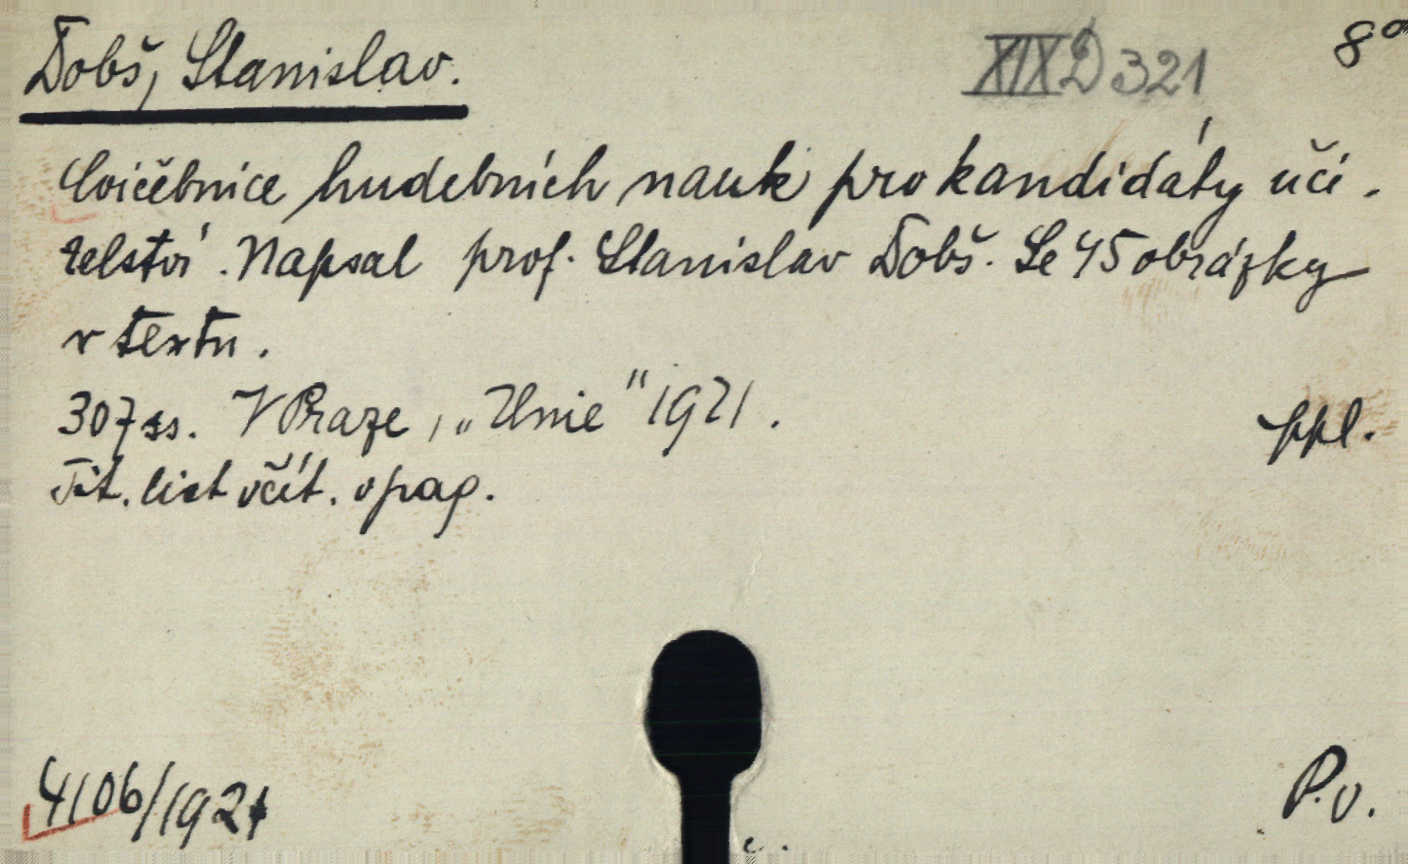 Dobš, Stanislav.
XIX D 321
8°
Cvičebnice hudebních nauk pro kandidáty uči-
telství. Napsal prof. Stanislav Dobš. Se 45 obrázky
v textu.
307 ss. V Praze, „Unie" 1921.
ppl.
Tit. list včít. v pag.
4106/1921
P.v.